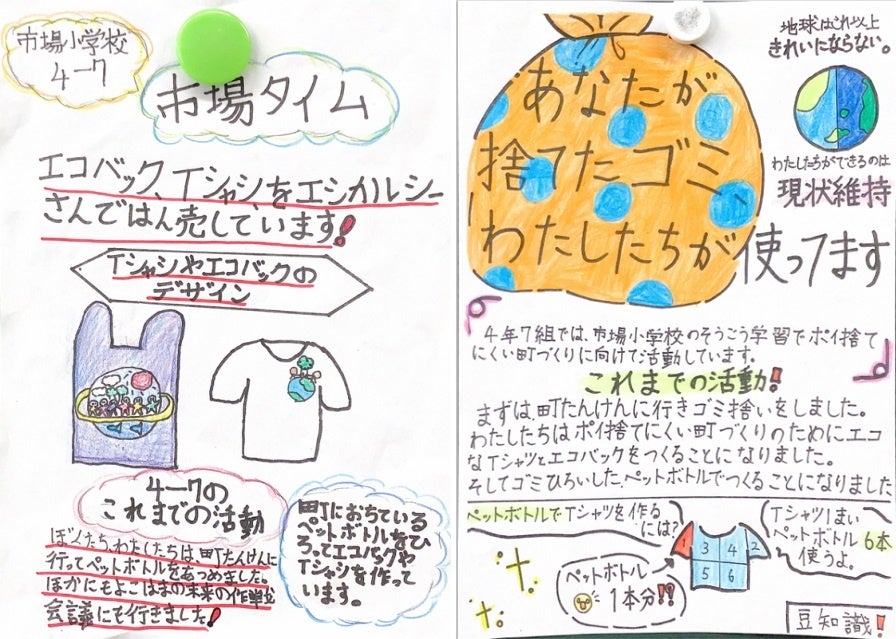 市場小学校
4-7
市場タイム
エコバック、Tシャシ、をエシカルシー
さんではん売しています!
Tシャシやエコバックの
デザイン
4-7の
これまでの活動
ぼくたち、わたしたちは、町たんけんに
行ってペットボトルをあつめました。
ほかにもよこはまの未来の作戦
会議にも行きました!
町におちている
ペットボトルをひ
ろってエコバッグや
Tシャシを作って
います。
あなたが
捨てたゴミ
わたしたちが使ってます
地球はこれ以上
きれいにならない。
わたしたちができるのは
現状維持
4年7組では、市場小学校のそうごう学習でポイ捨て
にくい町づくりに向けて活動しています。
これまでの活動!
まずは、町たんけんに行きゴミ捨いをしました。
わたしたちはポイ捨てにくい町づくりのためにエコ
なTシャツとエコバックをつくることになりました。
そしてゴミひろいした、ペットボトルでつくることになりました
ペットボトルでTシャツを作る
には?
3 4 2
5 6
ペットボトル
1本分!!
Tシャツ1まい
ペットボトル6本
使うよ。
豆知識!